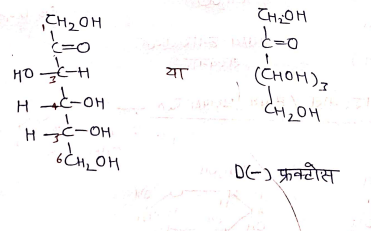 ¹CH₂OH
C=O
HO –³C–H
H –⁴C–OH
H –³C–OH
⁶CH₂OH
या
CH₂OH
C=O
(CHOH)₃
CH₂OH
D(-) फ्रक्टोस